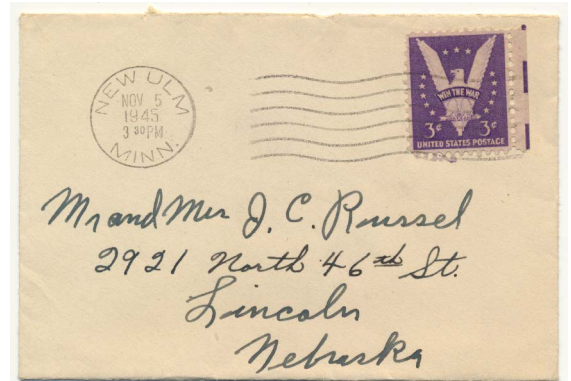 NEW ULM
NOV 5
1945
3 30 PM
MINN.
WIN THE WAR
3¢ 3¢
UNITED STATES POSTAGE
Mr and Mrs J. C. Russel
2921 North 46th St.
Lincoln
Nebraska